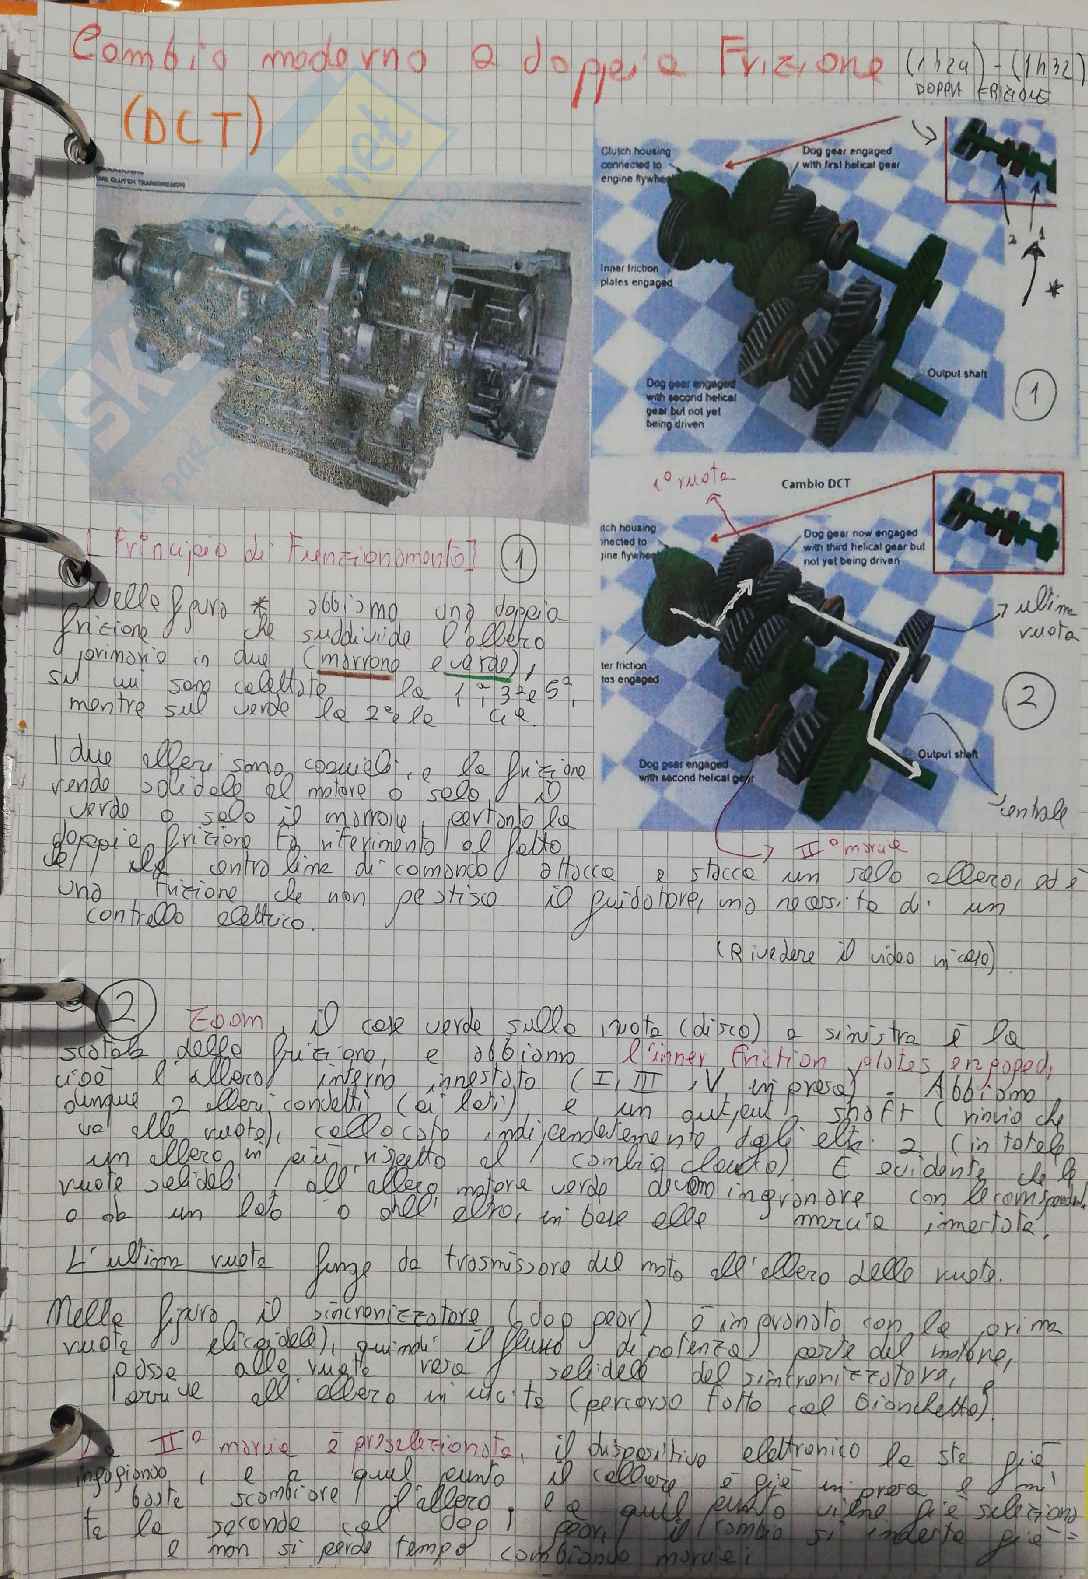 Cambio moderno a doppia Frizione (1h24) - (1h32)
DOPPIA FRIZIONE
(DCT)
CLUTCH TRANSMISSION
Clutch housing
connected to
engine flywheel
Dog gear engaged
with first helical gear
2 1
*
Inner friction
plates engaged
Dog gear engaged
with second helical
gear but not yet
being driven
Output shaft
1
1° ruota
Cambio DCT
tch housing
nnected to
gine flywheel
Dog gear now engaged
with third helical gear but
not yet being driven
ultima
ruota
ter friction
tes engaged
2
Dog gear engaged
with second helical gear
Output shaft
centrale
II° marcia
[Principio di Funzionamento] 1
Nella figura * abbiamo una doppia
frizione che suddivide l'albero
primario in due (marrone e verde),
su un sono calettate la 1ª, 3ª e 5ª,
mentre sul verde la 2ª e la 4ª.
I due alberi sono coassiali, e la frizione
rende solidale al motore o solo il
verde o solo il marrone, pertanto la
doppia frizione fa riferimento al fatto
che la centralina di comando attacca e stacca un solo albero, ed è
una frizione che non gestisce il guidatore, ma necessita di un
controllo elettrico.
(Rivedere il video in casa)
2 Zoom, il case verde sulla ruota (disco) a sinistra è la
scatola della frizione, e abbiamo l'inner friction plates engaged,
cioè l'albero interno innestato (I, III, V in presa). Abbiamo
dunque 2 alberi condotti (ai lati) e un output shaft (rinvio che
va alle ruote), collocato indipendentemente dagli altri 2 (in totale
un albero in più rispetto al cambio classico). È evidente che le
ruote solidali all'albero motore verde devono ingranare con le corrispondenti
o da un lato o dall'altro, in base alla marcia innestata.
L'ultima ruota funge da trasmissore del moto all'albero delle ruote.
Nella figura il sincronizzatore (dog gear) è impegnato con la prima
ruota elicoidale, quindi il flusso di potenza parte dal motore,
passa alla ruota resa solidale dal sincronizzatore, e
arriva all'albero in uscita (percorso fatto col bianchetto).
La II° marcia è preselezionata, il dispositivo elettronico la sta già
ingaggiando, e a quel punto il collare è già in presa e mi
basta scambiare l'albero, e a quel punto viene già seleziona
ta la seconda col dog gear, il cambio si innesta già
e non si perde tempo cambiando marcia;